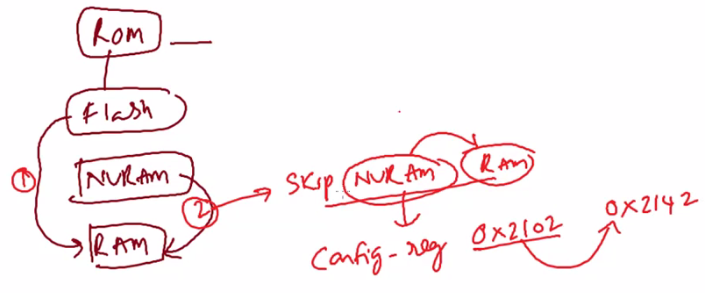 Rom
Flash
1
NVRAM
RAM
2
Skip NVRAM RAM
Config-reg 0x2102
0x2142